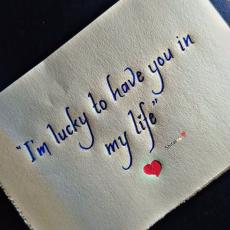 "I'm lucky to have you in
my life"